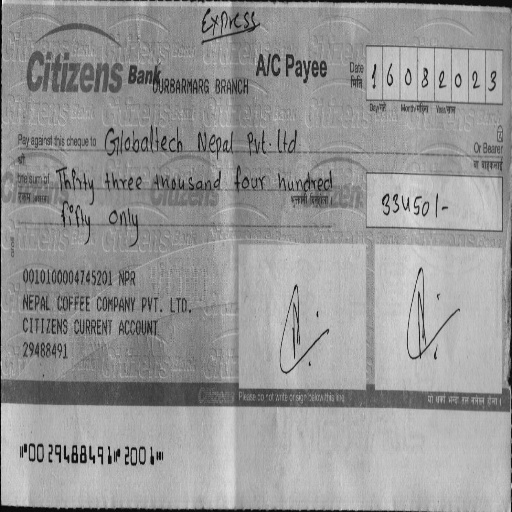 Express
Citizens Bank
DURBARMARG BRANCH
A/C Payee
Date
मिति
1 6 0 8 2 0 2 3
Day/गते Month/महिना Year/साल
Pay against this cheque to Globaltech Nepal Pvt. ltd
श्री
Or Bearer
वा वाहकलाई
the sum of Thirty three thousand four hundred
fifty only
33450/-
0010100004745201 NPR
NEPAL COFFEE COMPANY PVT. LTD.
CITIZENS CURRENT ACCOUNT
29488491
Please do not write or sign below this line
⑈0029488491⑈2001⑈